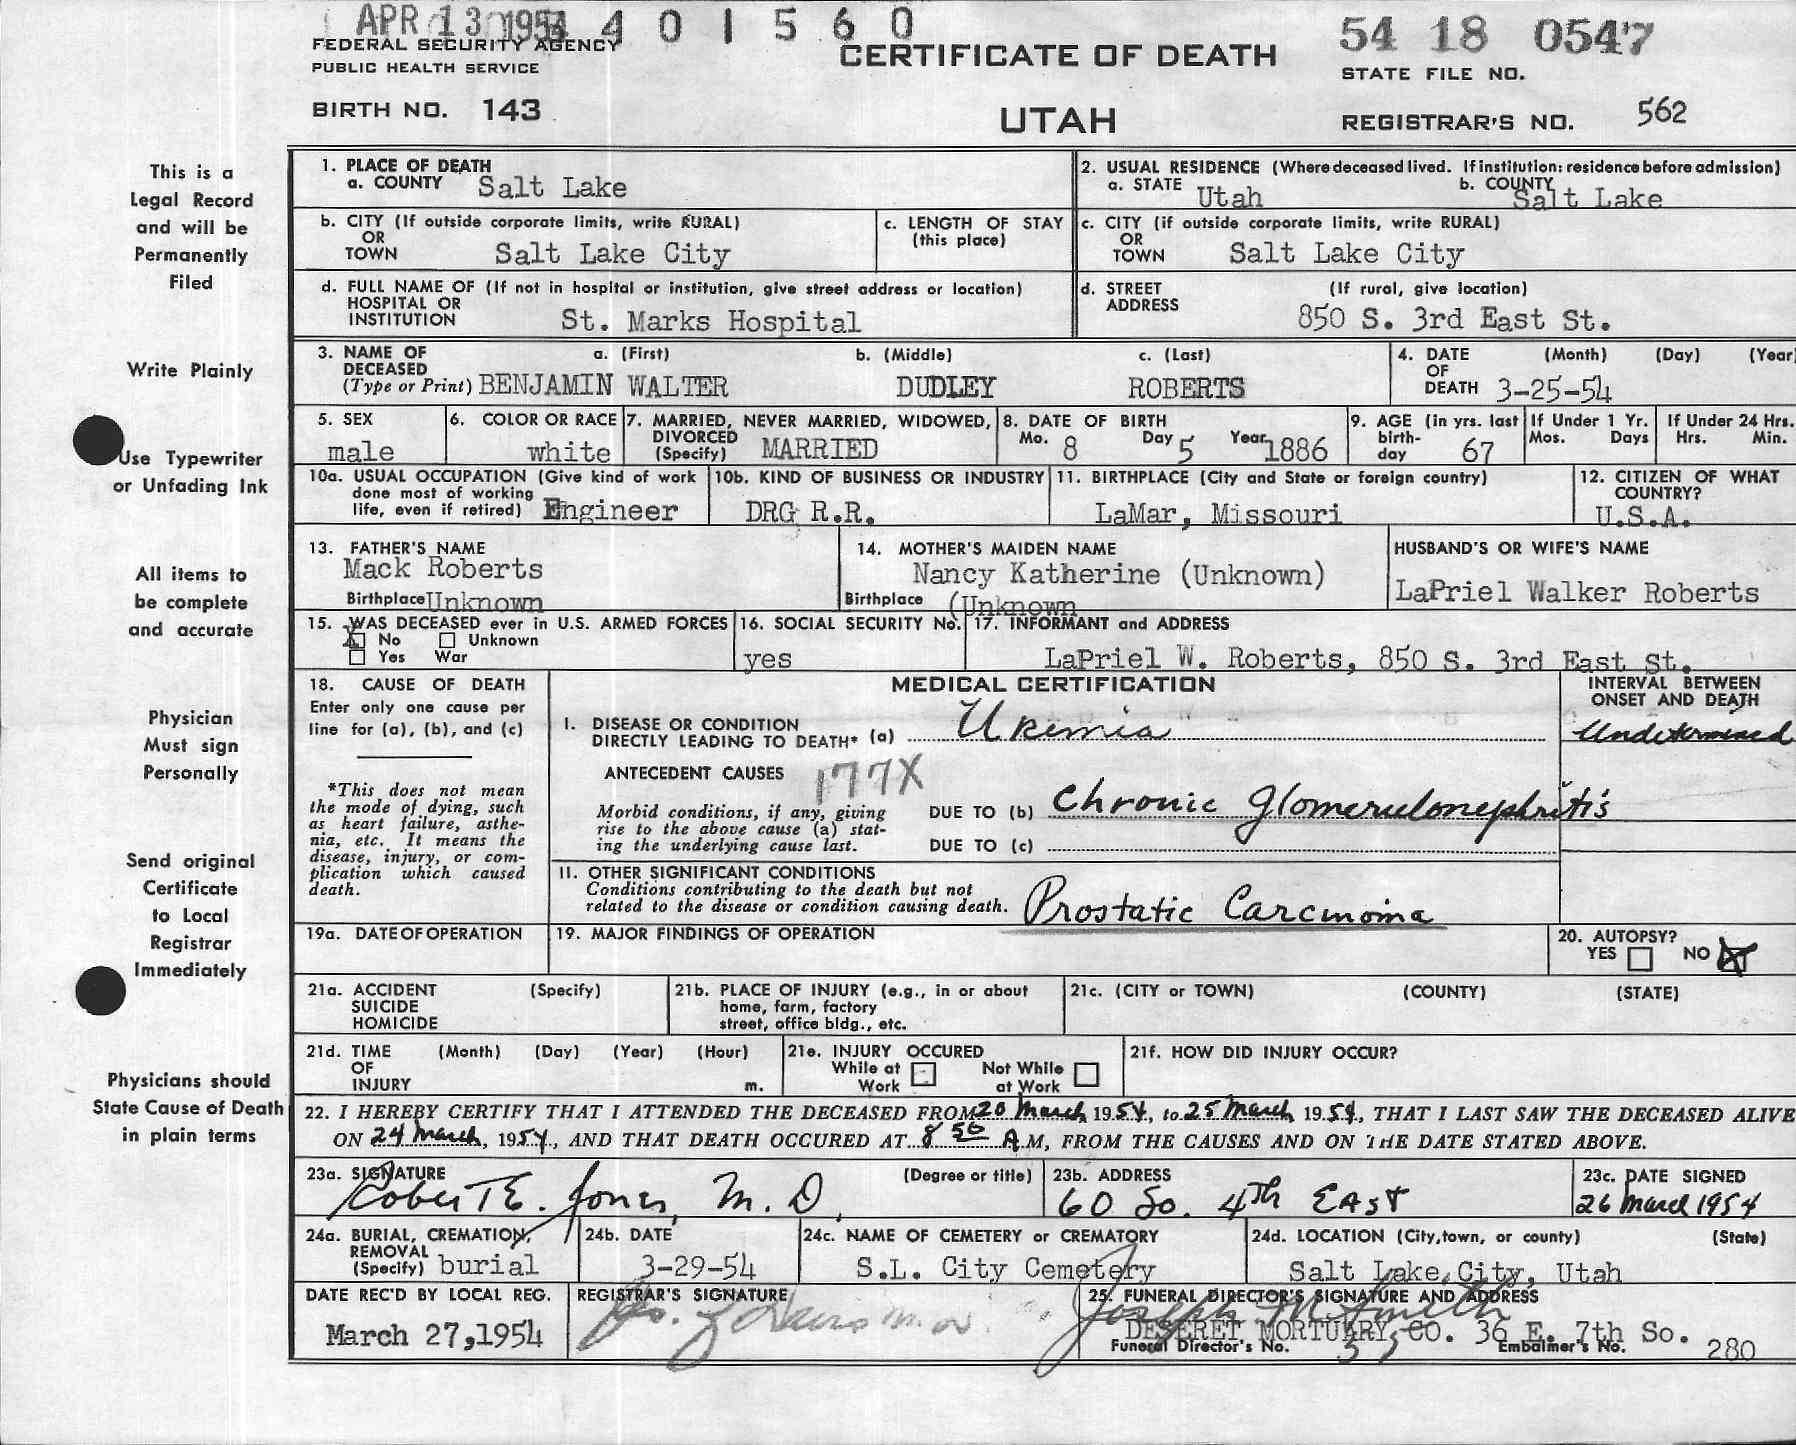 APR 13 1954 401560
54 18 0547
FEDERAL SECURITY AGENCY
PUBLIC HEALTH SERVICE
CERTIFICATE OF DEATH
STATE FILE NO.
BIRTH NO. 143
UTAH
REGISTRAR'S NO. 562
This is a
Legal Record
and will be
Permanently
Filed
Write Plainly
Use Typewriter
or Unfading Ink
All items to
be complete
and accurate
Physician
Must sign
Personally
Send original
Certificate
to Local
Registrar
Immediately
Physicians should
State Cause of Death
in plain terms
1. PLACE OF DEATH
a. COUNTY Salt Lake
2. USUAL RESIDENCE (Where deceased lived. If institution: residence before admission)
a. STATE Utah b. COUNTY Salt Lake
b. CITY (If outside corporate limits, write RURAL)
OR
TOWN Salt Lake City
c. LENGTH OF STAY
(this place)
c. CITY (if outside corporate limits, write RURAL)
OR
TOWN Salt Lake City
d. FULL NAME OF (If not in hospital or institution, give street address or location)
HOSPITAL OR
INSTITUTION St. Marks Hospital
d. STREET (If rural, give location)
ADDRESS
850 S. 3rd East St.
3. NAME OF a. (First) b. (Middle) c. (Last)
DECEASED
(Type or Print) BENJAMIN WALTER DUDLEY ROBERTS
4. DATE (Month) (Day) (Year)
OF
DEATH 3-25-54
5. SEX
male
6. COLOR OR RACE
white
7. MARRIED, NEVER MARRIED, WIDOWED,
DIVORCED
(Specify) MARRIED
8. DATE OF BIRTH
Mo. 8 Day 5 Year 1886
9. AGE (in yrs. last
birth-
day 67
If Under 1 Yr.
Mos. Days
If Under 24 Hrs.
Hrs. Min.
10a. USUAL OCCUPATION (Give kind of work
done most of working
life, even if retired) Engineer
10b. KIND OF BUSINESS OR INDUSTRY
DRG R.R.
11. BIRTHPLACE (City and State or foreign country)
LaMar, Missouri
12. CITIZEN OF WHAT
COUNTRY?
U.S.A.
13. FATHER'S NAME
Mack Roberts
Birthplace Unknown
14. MOTHER'S MAIDEN NAME
Nancy Katherine (Unknown)
Birthplace (Unknown
HUSBAND'S OR WIFE'S NAME
LaPriel Walker Roberts
15. WAS DECEASED ever in U.S. ARMED FORCES
X No Unknown
Yes War
16. SOCIAL SECURITY No.
yes
17. INFORMANT and ADDRESS
LaPriel W. Roberts, 850 S. 3rd East St.
18. CAUSE OF DEATH
Enter only one cause per
line for (a), (b), and (c)
*This does not mean
the mode of dying, such
as heart failure, asthe-
nia, etc. It means the
disease, injury, or com-
plication which caused
death.
MEDICAL CERTIFICATION
INTERVAL BETWEEN
ONSET AND DEATH
I. DISEASE OR CONDITION
DIRECTLY LEADING TO DEATH* (a) Uremia
Undetermined
ANTECEDENT CAUSES 177X
Morbid conditions, if any, giving
rise to the above cause (a) stat-
ing the underlying cause last.
DUE TO (b) Chronic glomerulonephritis
DUE TO (c)
II. OTHER SIGNIFICANT CONDITIONS
Conditions contributing to the death but not
related to the disease or condition causing death. Prostatic Carcinoma
19a. DATE OF OPERATION
19. MAJOR FINDINGS OF OPERATION
20. AUTOPSY?
YES NO X
21a. ACCIDENT (Specify)
SUICIDE
HOMICIDE
21b. PLACE OF INJURY (e.g., in or about
home, farm, factory
street, office bldg., etc.
21c. (CITY or TOWN) (COUNTY) (STATE)
21d. TIME (Month) (Day) (Year) (Hour)
OF
INJURY m.
21e. INJURY OCCURED
While at Not While
Work at Work
21f. HOW DID INJURY OCCUR?
22. I HEREBY CERTIFY THAT I ATTENDED THE DECEASED FROM 20 March, 1954, to 25 March, 1954, THAT I LAST SAW THE DECEASED ALIVE
ON 24 March, 1954, AND THAT DEATH OCCURED AT 8 50 A.M, FROM THE CAUSES AND ON THE DATE STATED ABOVE.
23a. SIGNATURE (Degree or title)
Robert E. Jones, M.D.
23b. ADDRESS
60 So. 4th EAST
23c. DATE SIGNED
26 March 1954
24a. BURIAL, CREMATION,
REMOVAL
(Specify) burial
24b. DATE
3-29-54
24c. NAME OF CEMETERY or CREMATORY
S.L. City Cemetery
24d. LOCATION (City, town, or county) (State)
Salt Lake City, Utah
DATE REC'D BY LOCAL REG.
March 27, 1954
REGISTRAR'S SIGNATURE
25. FUNERAL DIRECTOR'S SIGNATURE AND ADDRESS
Joseph M. Smith
DESERET MORTUARY CO. 36 E. 7th So.
Funeral Director's No. Embalmer's No. 280